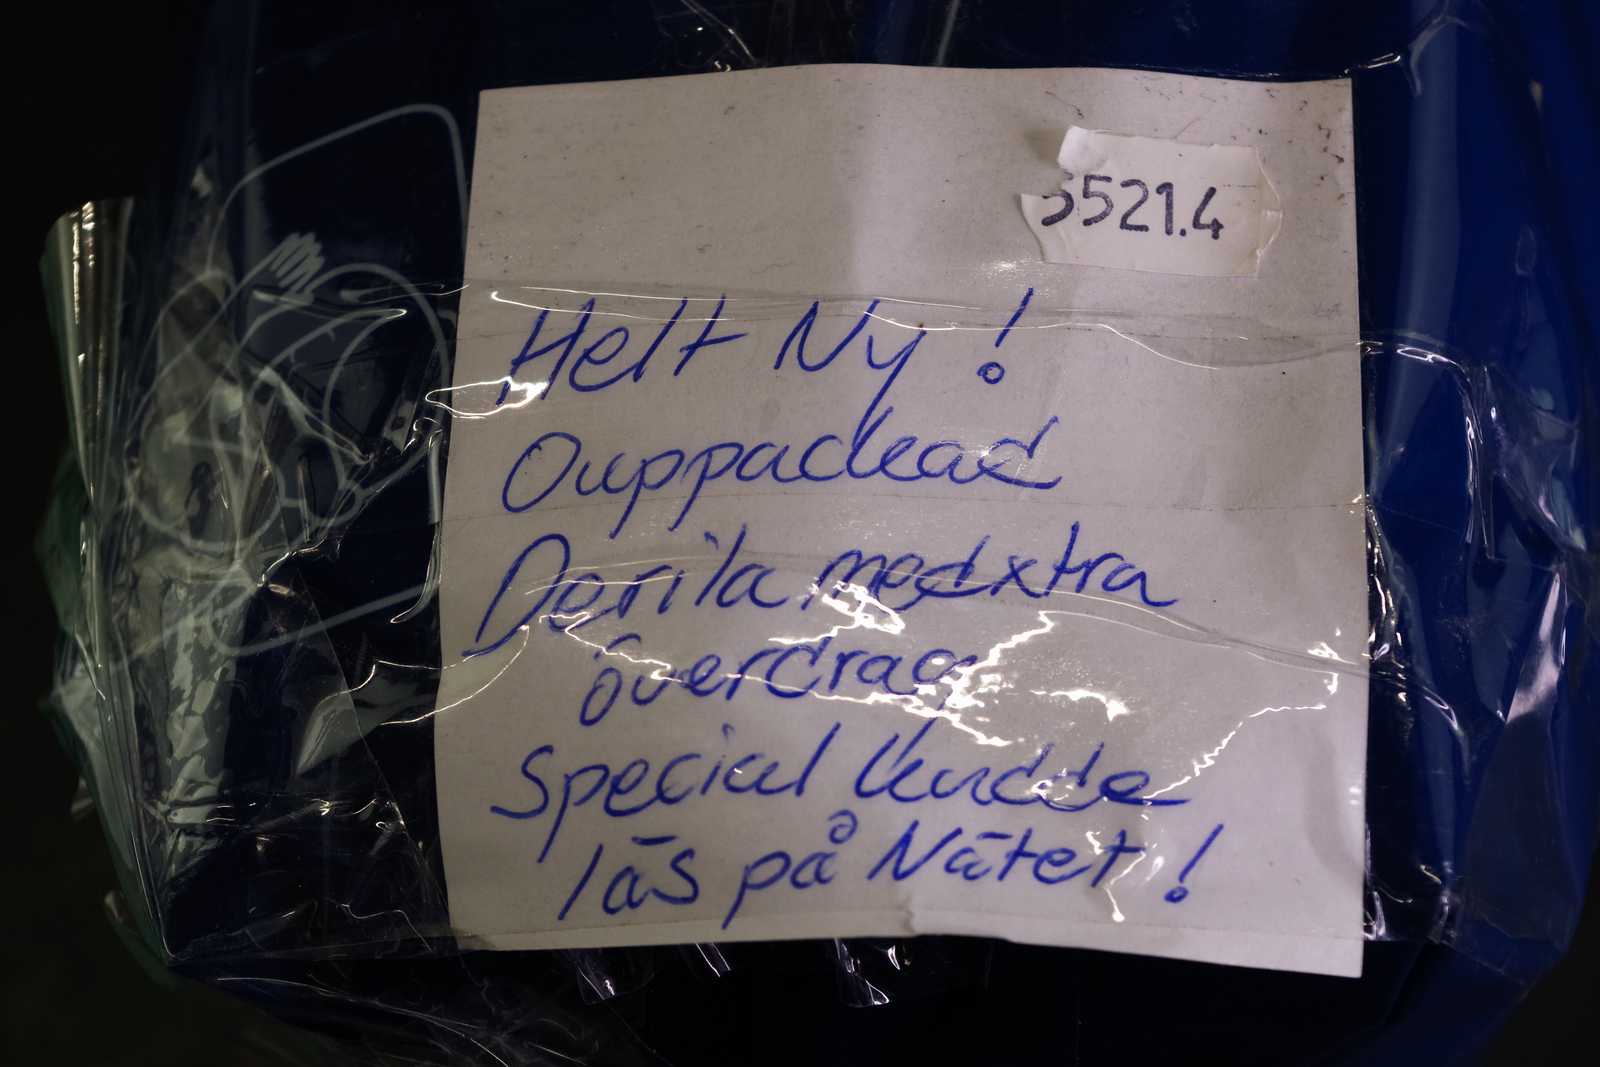 5521.4
Helt Ny!
Ouppackad
Dorila medxtra
överdrag
Special kudde
läs på Nätet!